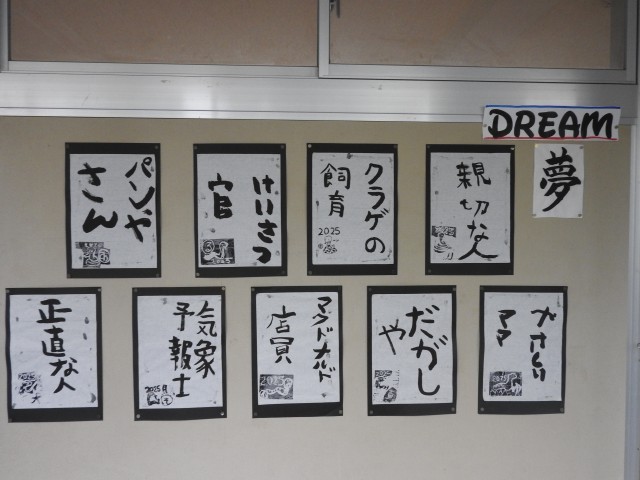 DREAM
夢
親切な人
クラゲの
飼育
2025
けいさつ
官
2025
パンや
さん
やさしい
ママ
2025
だがし
や
マクドナルド
店員
2025
気象
予報士
2025
正直な人